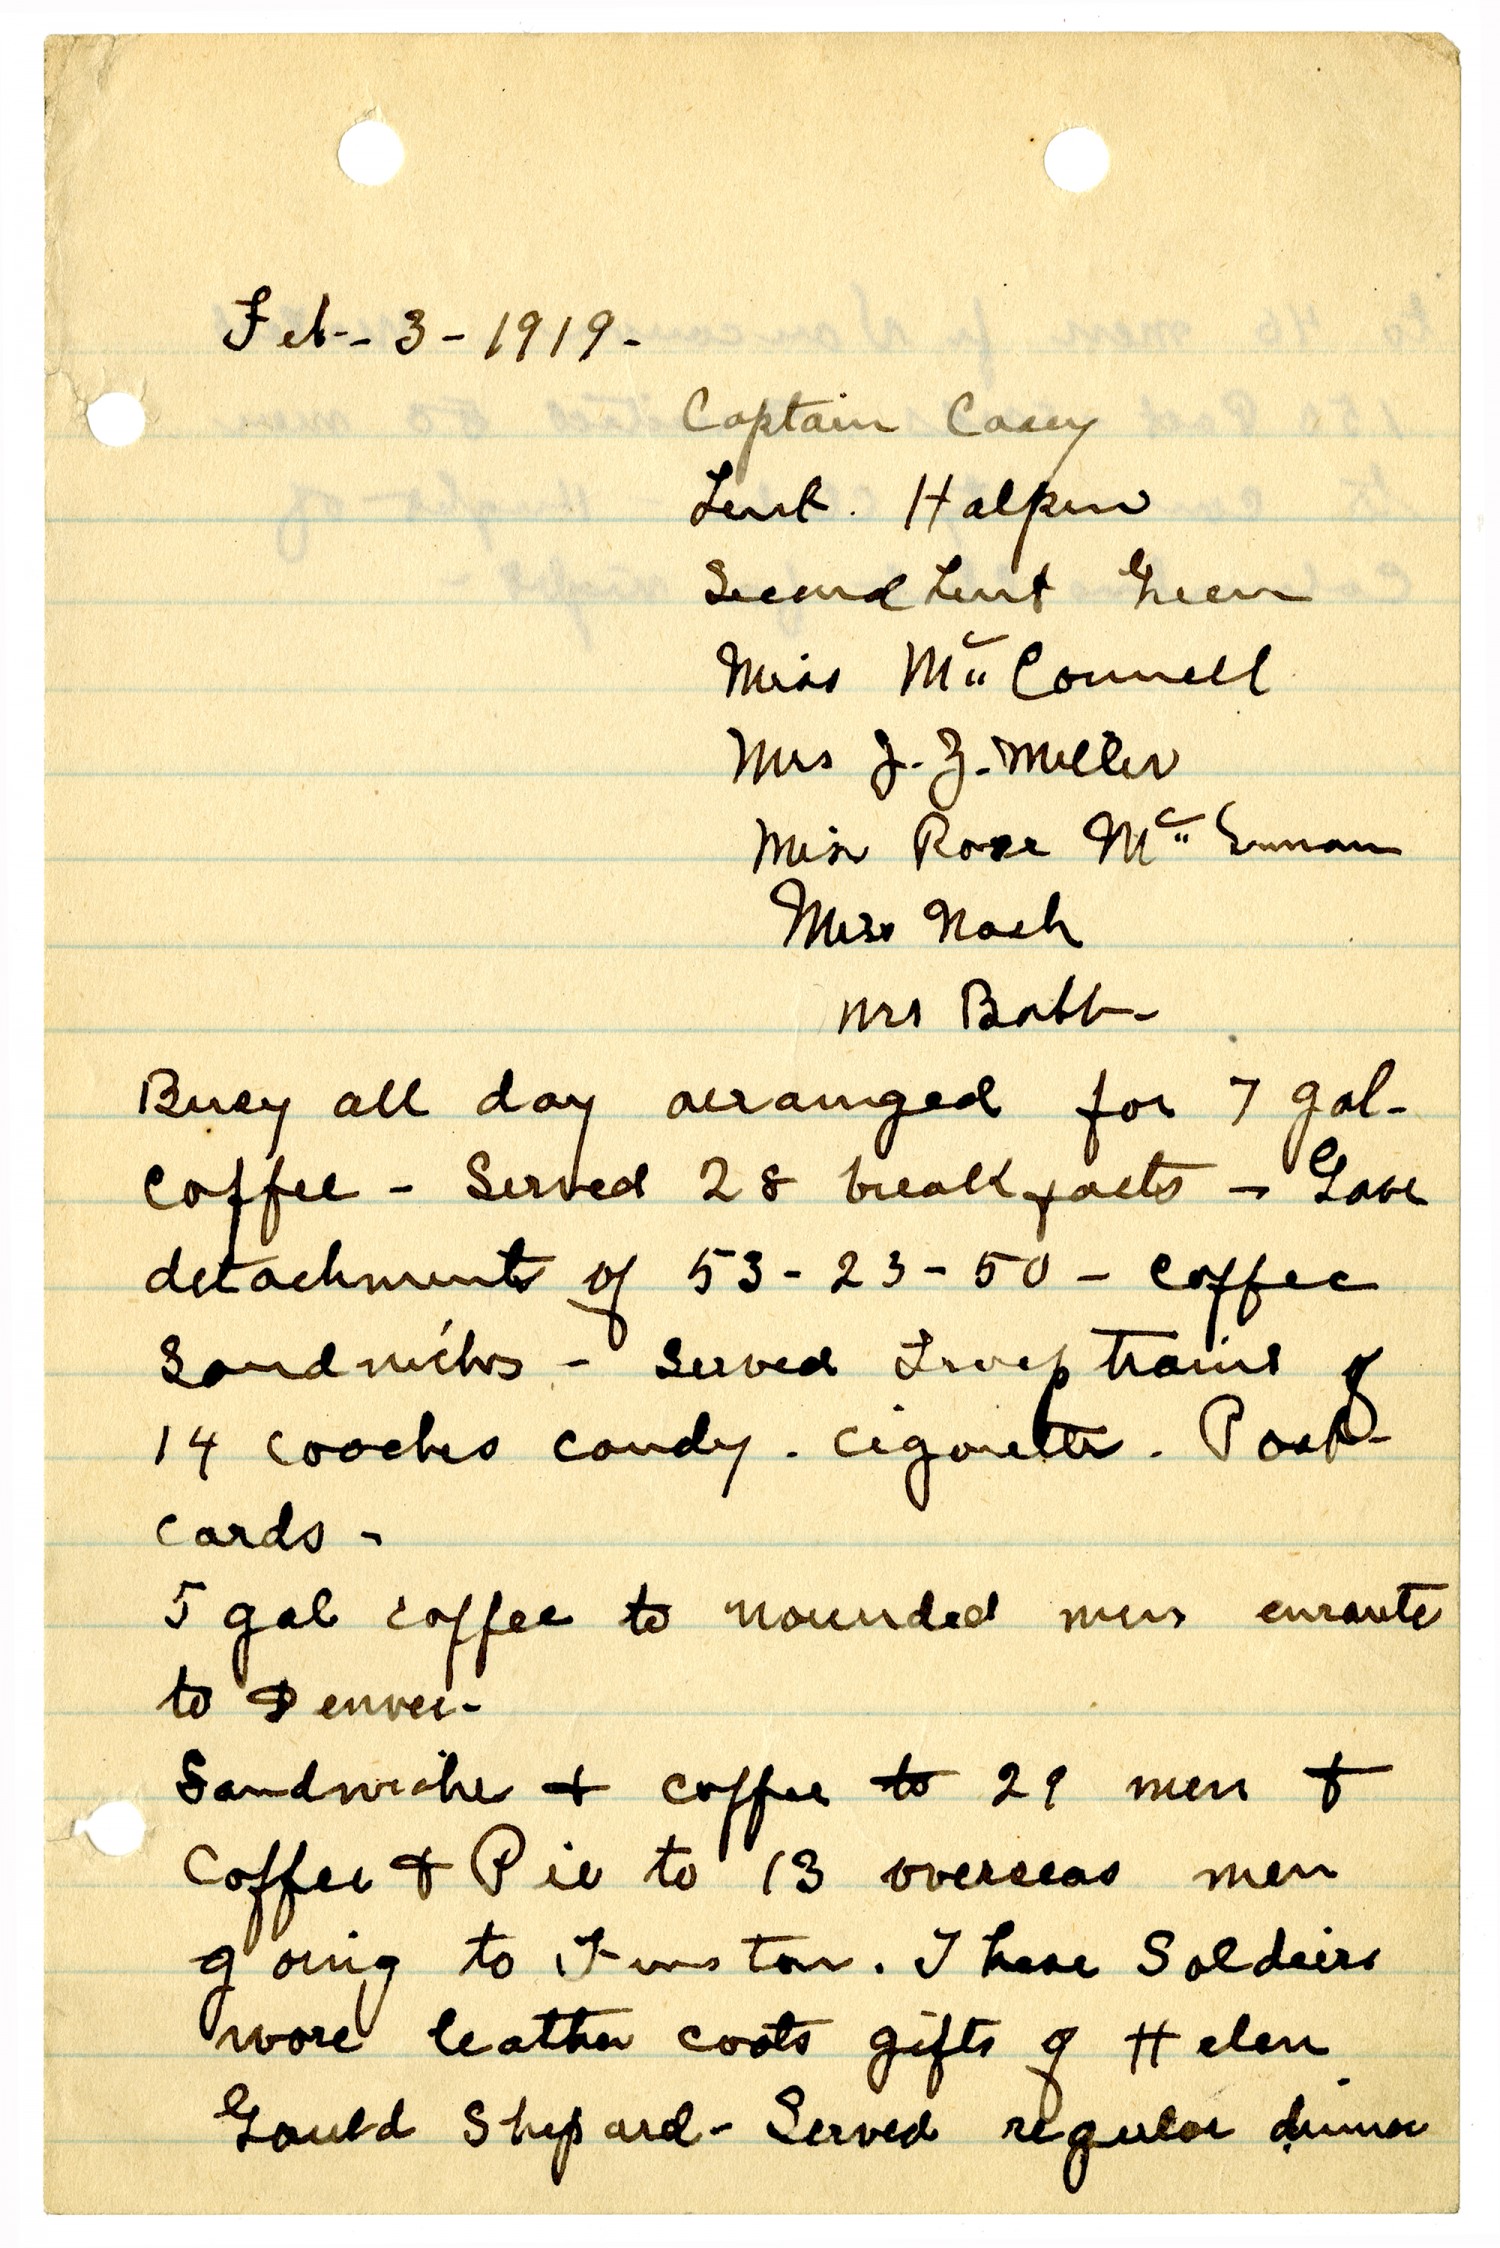 Feb - 3 - 1919 -
Captain Casey
Leut. Halpin
Second Leut Green
Miss Mc Connell
Mrs J. Z. Miller
Miss Rose Mc
Miss Nash
Mrs Babb -
Busy all day arranged for 7 gal -
coffee - Served 28 breakfasts - Gave
detachments of 53 - 23 - 50 - coffee
Sandwiches - Served Troop trains of
14 coaches candy. cigarettes. Post -
cards -
5 gal coffee to wounded men enroute
to Denver -
Sandwiches & coffee to 29 men &
Coffee & Pie to 13 overseas men
going to Funston. These Soldeirs
wore leather coats gifts of Helen
Gould Shepard - Served regular dinner